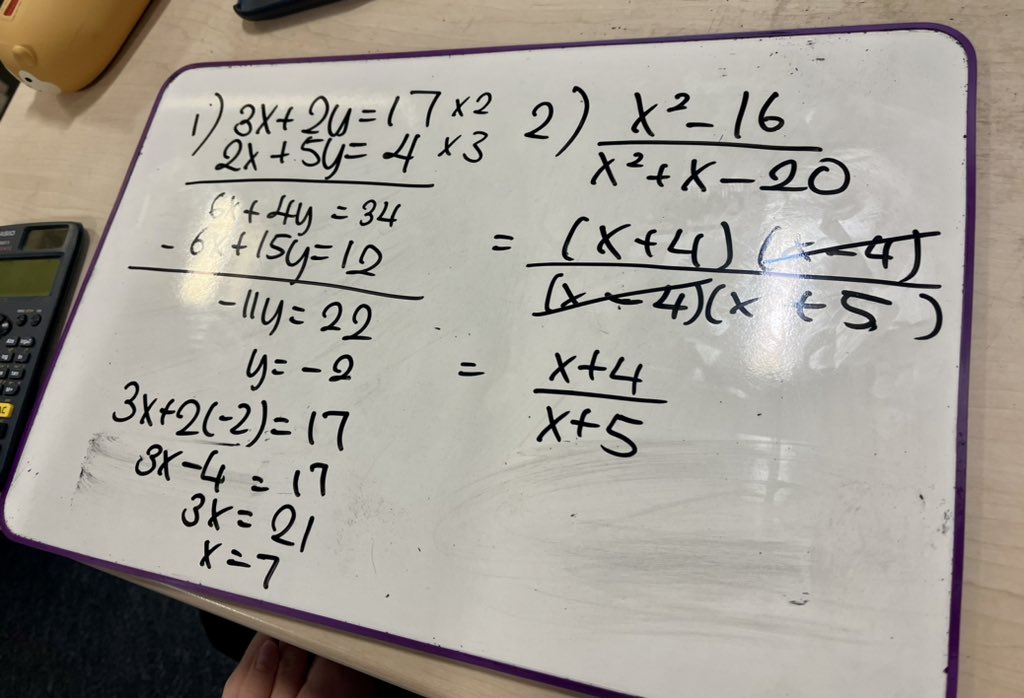 1) 3x + 2y = 17 ×2
2x + 5y = 4 ×3
6x + 4y = 34
- 6x + 15y = 12
-11y = 22
y = -2
3x + 2(-2) = 17
3x - 4 = 17
3x = 21
x = 7
2) x² - 16
x² + x - 20
= (x + 4)(x - 4)
(x - 4)(x + 5)
= x + 4
x + 5
CASIO
AC